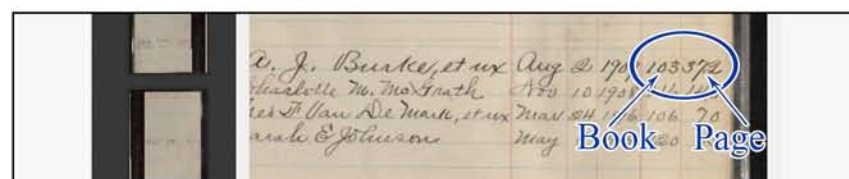 A. J. Burke, et ux Aug 2 190 103 372
M. McGrath Nov 10 1908
Van De Mark, et ux Mar 24 106 70
Sarah E Johnson May 20
Book Page